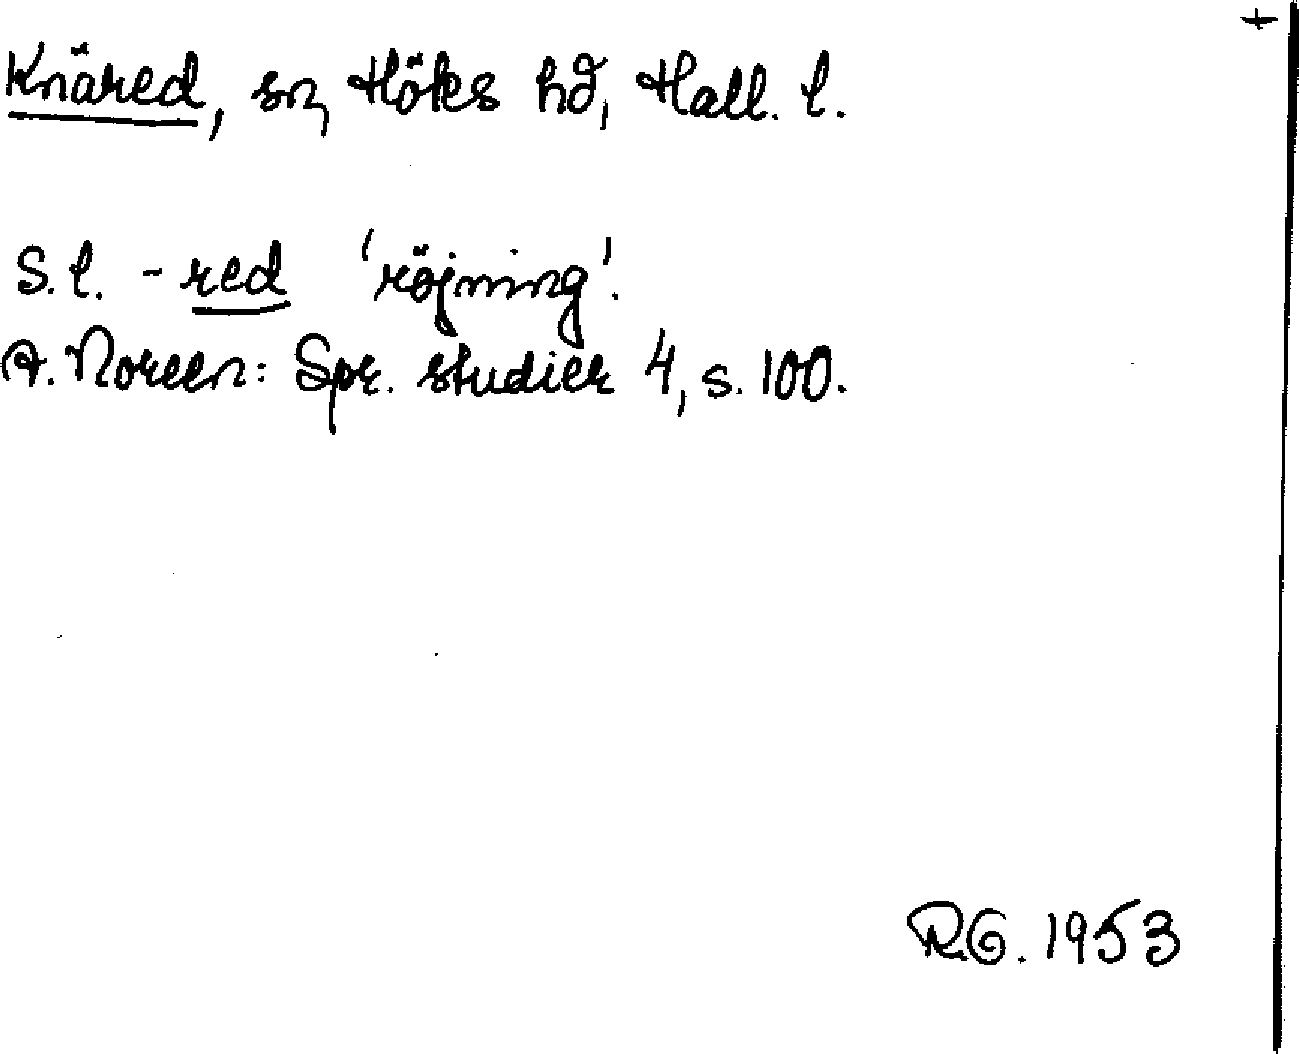 +
Knäred, sn, Höks hd, Hall. l.
S.l. -red 'röjning'.
A. Noreen: Spr. studier 4, s. 100.
R.G. 1953